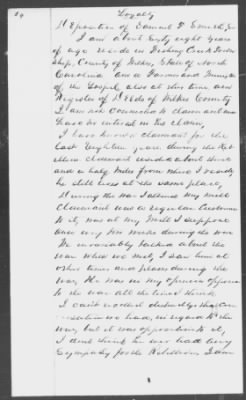 Loyalty
Deposition of Samuel P. Smith Jr
I am about Sixty eight years
of age reside in Fishing Creek Town
ship, County of Wilkes, State of North
Carolina am a Farmer and Minister
of the Gospel, also at this time
Register of Deeds of Wilkes County
I am not Counsel to Claimant and
have no interest in his claim,
I have known claimant for the
last Eighteen years, during the Re
bellion Claimant resided about three
and a half miles from where I reside
he still lives at the same place,
During the war I owned my mill
Claimant was a regular Customer
to it, was at my Mill I suppose
once every two weeks during the war
We invariably talked about the
war when we met, I saw him at
other times and places during the
war, He was in my opinion opposed
to the war all the time
I can't recollect distinctly the Con
versation we had, in regard to the
war, but it was opposition to it,
I don't think he ever had any
Sympathy for the Rebellion I am